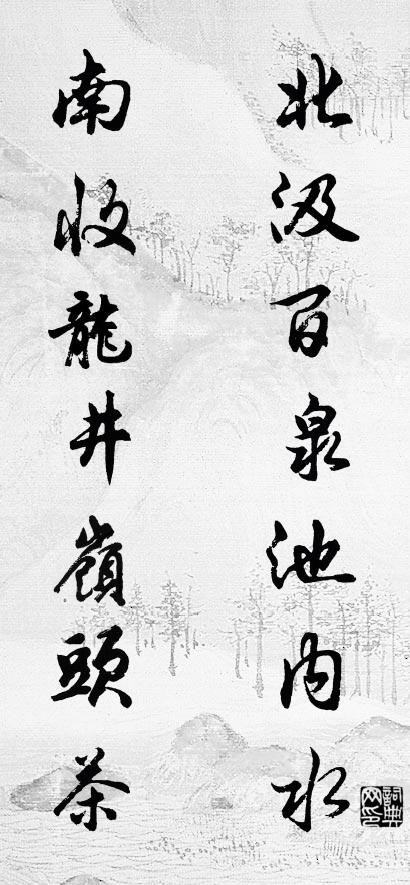 北汲百泉池内水
南收龍井嶺頭茶
詞典网印